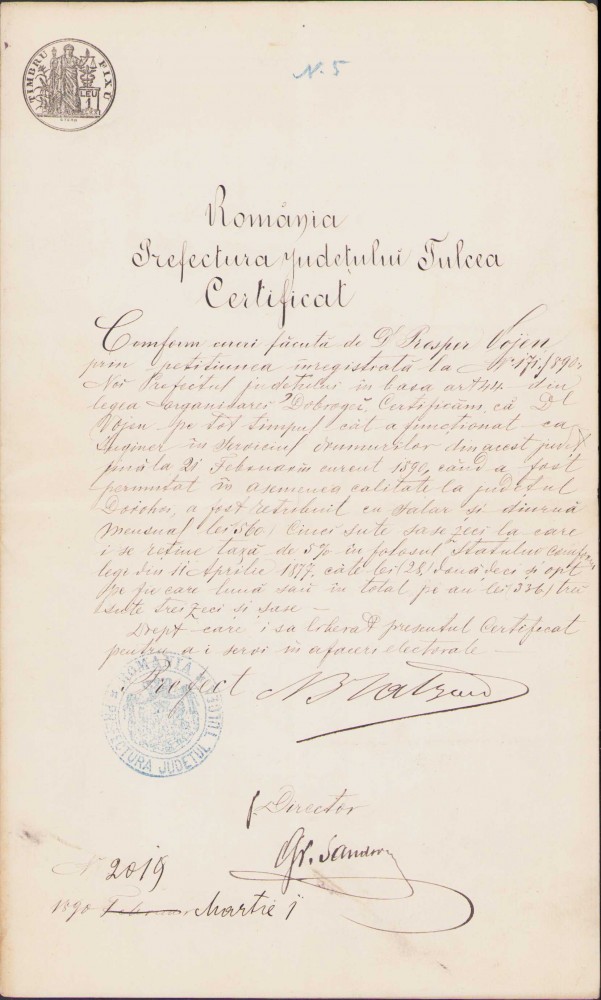 TIMBRU FIX
LEU
1
N. 5
România
Prefectura Județului Tulcea
Certificat
Conform cereri făcută de Dl Prosper Vojen
prin petițiunea înregistrată la No 171/890
Noi Prefectul județului în basa art 44 din
legea organisarei Dobrogei, Certificăm că Dl
Vojen pe tot timpul cât a funcționat ca
Inginer în Serviciul drumurilor din acest județ
până la 21 Februarie curent 1890, când a fost
permutat în asemenea calitate la județul
Dorohoi, a fost retribuit cu salar și diurnă
mensual lei 560/ Cinci sute șase zeci la care
i se reține taxă de 5% în folosul Statului conform
lege din 11 Aprilie 1877, câte lei (28) două zeci și opt
pe fie care lună sau în total pe an lei (336) trei
sute trei zeci și șase —
Drept care i sa liberat presentul Certificat
pentru a i servi în afaceri electorale —
Prefect
ROMANIA
PREFECTURA JUDEȚUL TULCEA
p. Director
Gr. Sandor
N 2019
1890 Februar Martie 1